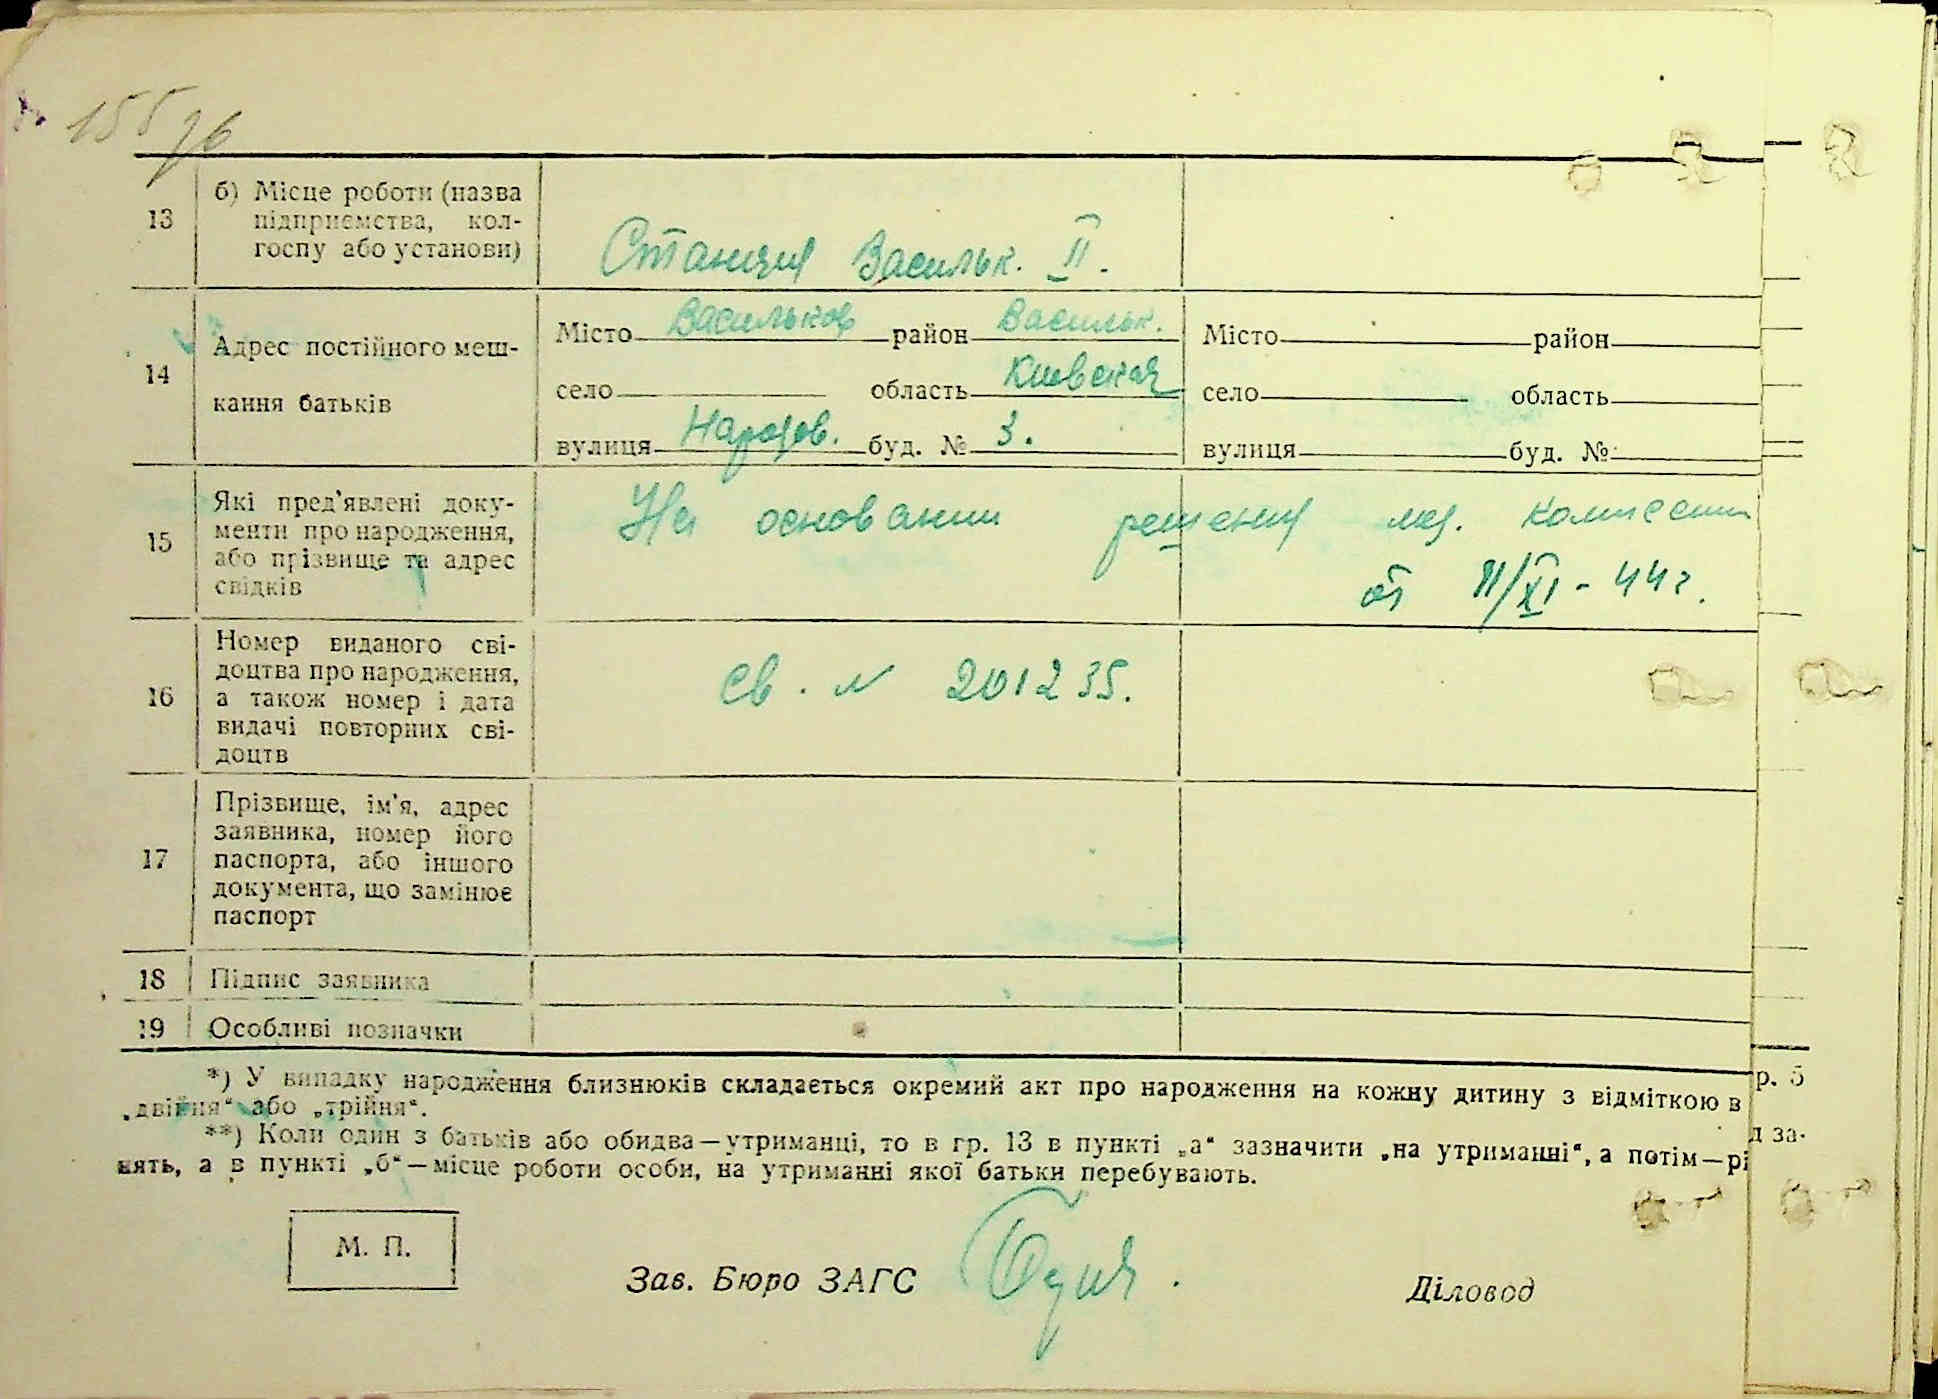 155 76
13 б) Місце роботи (назва
підприємства, кол-
госпу або установи)
Станция Васильк. II.
14 Адрес постійного меш-
кання батьків
Місто Васильков район Васильк.
село область Киевская
вулиця буд. № 3.
Місто район
село область
вулиця буд. №
15 Які пред'явлені доку-
менти про народження,
або прізвище та адрес
свідків
На основании решения мед. комиссии
от 11/XI - 44 г.
16 Номер виданого сві-
доцтва про народження,
а також номер і дата
видачі повторних сві-
доцтв
Св. N 201235.
17 Прізвище, ім'я, адрес
заявника, номер його
паспорта, або іншого
документа, що замінює
паспорт
18 Підпис заявника
19 Особливі позначки
*) У випадку народження близнюків складається окремий акт про народження на кожну дитину з відміткою в
р. 5
„двійня“ або „трійня“.
**) Коли один з батьків або обидва—утриманці, то в гр. 13 в пункті „а“ зазначити „на утриманні“, а потім—рі
д за-
нять, а в пункті „б“—місце роботи особи, на утриманні якої батьки перебувають.
М. П.
Зав. Бюро ЗАГС
Діловод